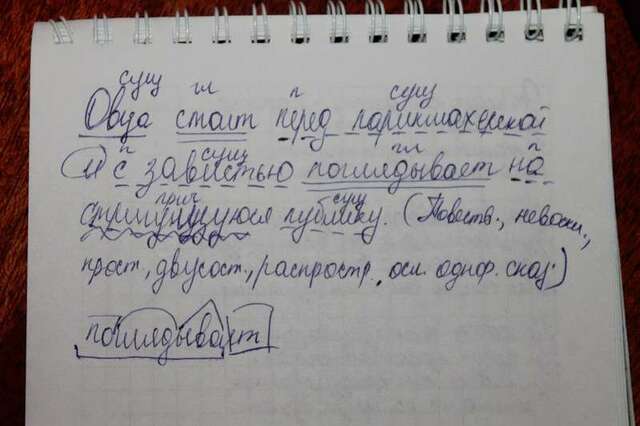 сущ гл п сущ
Овца стоит перед парикмахерской
п сущ гл п
и с завистью поглядывает на
прич сущ
публику. (Повеств., невоскл.,
прост., двусост., распростр., осл. одноф. сказ.)
поглядывает